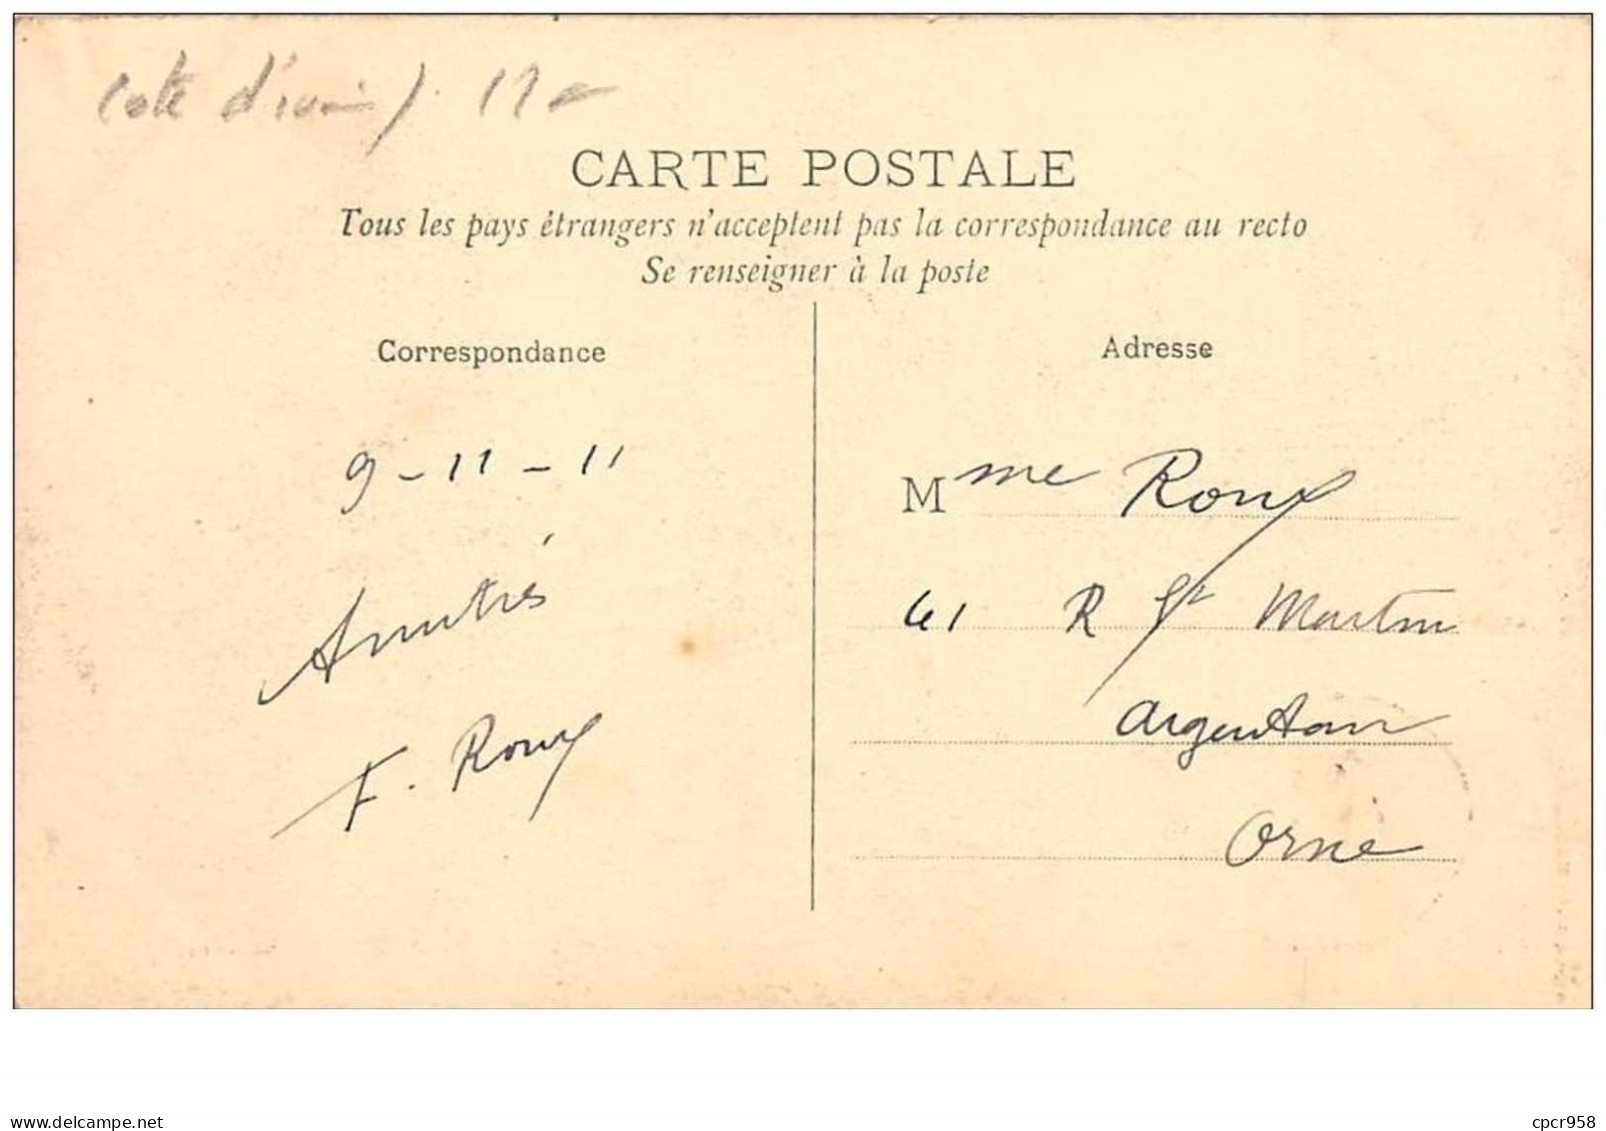 Cote d'ivoire 12
CARTE POSTALE
Tous les pays étrangers n'acceptent pas la correspondance au recto
Se renseigner à la poste
Correspondance
Adresse
9-11-11
Amitiés
F. Roux
Mme Roux
41 R St Martin
Argentan
Orne
delcampe.net
cpcr958